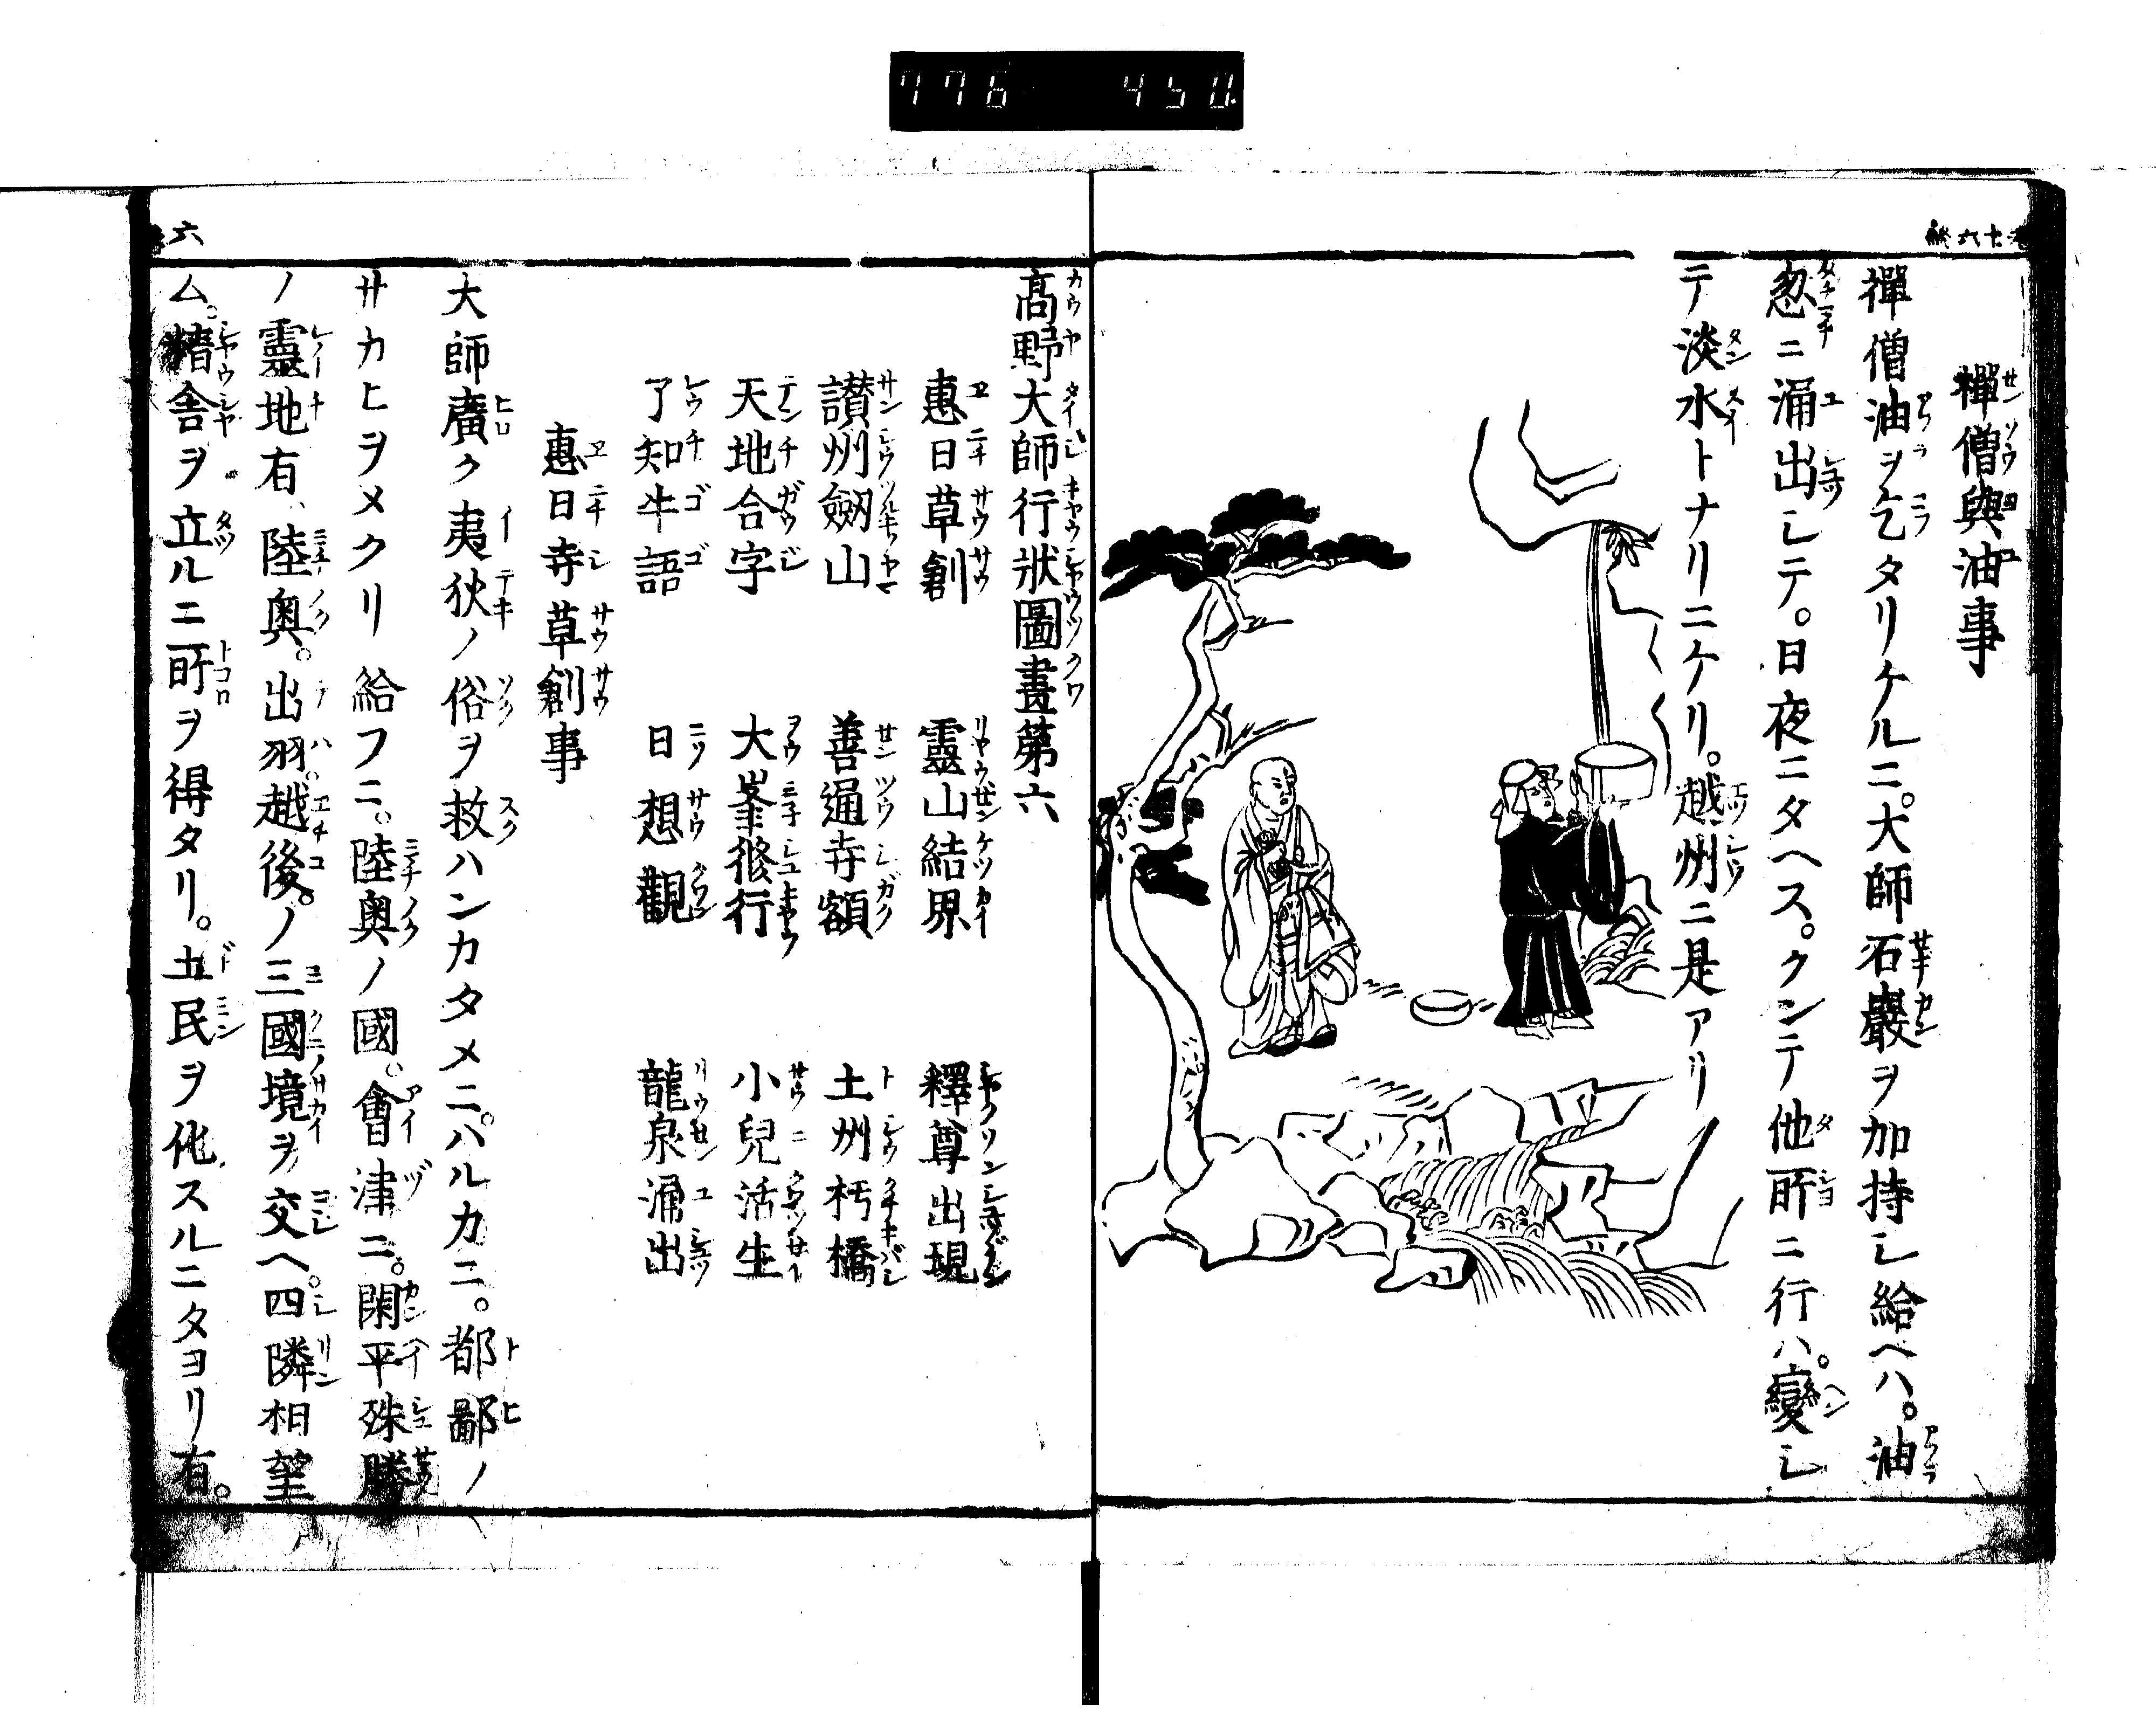 776 450
禪僧與油事
禪僧油ヲ乞タリケルニ。大師石巖ヲ加持シ給ヘハ。油
忽ニ涌出シテ。日夜ニタヘス。クンテ他所ニ行ハ。變シ
テ淡水トナリニケリ。越州ニ是アリ
高野大師行狀圖畫第六
惠日草創 靈山結界 釋尊出現
讃州劔山 善通寺額 土州朽橋
天地合字 大峯修行 小兒活生
了知牛語 日想觀 龍泉涌出
惠日寺草創事
大師廣ク夷狄ノ俗ヲ救ハンカタメニ。ハルカニ。都鄙ノ
サカヒヲメクリ給フニ。陸奥ノ國。會津ニ。閑平殊勝
ノ靈地有、陸奥。出羽。越後。ノ三國境ヲ交ヘ。四隣相望
ム。精舎ヲ立ルニ所ヲ得タリ。土民ヲ化スルニタヨリ有。
六